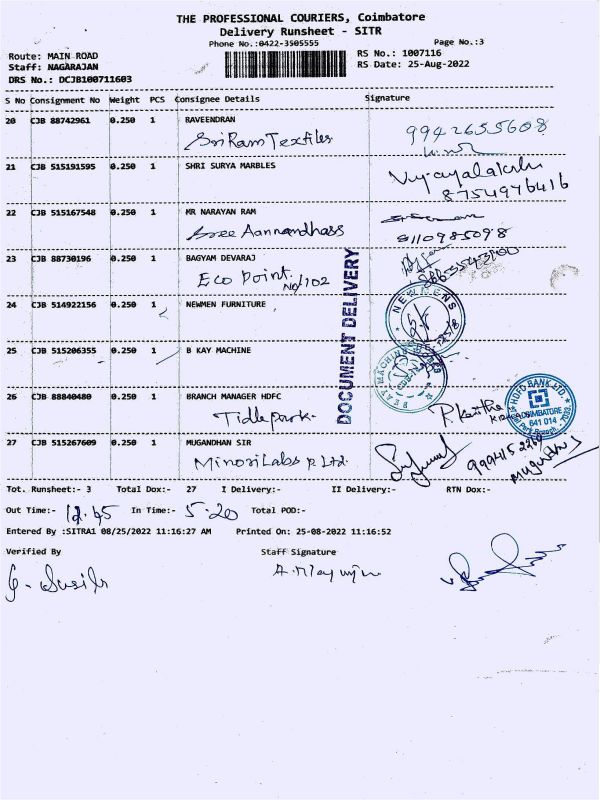 THE PROFESSIONAL COURIERS, Coimbatore
Delivery Runsheet - SITR
Phone No.:0422-3505555 Page No.:3
Route: MAIN ROAD RS No.: 1007116
Staff: NAGARAJAN RS Date: 25-Aug-2022
DRS No.: DCJB100711603
S No Consignment No Weight PCS Consignee Details Signature
20 CJB 88742961 0.250 1 RAVEENDRAN
Sri Ram Textiles 9942655608
21 CJB 515191595 0.250 1 SHRI SURYA MARBLES Vijayalakshmi
8754976416
22 CJB 515167548 0.250 1 MR NARAYAN RAM
Sree Aannandhass 8110985098
23 CJB 88730196 0.250 1 BAGYAM DEVARAJ
Eco Point No/102
24 CJB 514922156 0.250 1 NEWMEN FURNITURE
25 CJB 515206355 0.250 1 B KAY MACHINE
DOCUMENT DELIVERY
26 CJB 88840480 0.250 1 BRANCH MANAGER HDFC
Tidle park
HDFC BANK LTD.
COIMBATORE
641 014
27 CJB 515267609 0.250 1 MUGANDHAN SIR
Minori Labs P Ltd.
Tot. Runsheet:- 3 Total Dox:- 27 I Delivery:- II Delivery:- RTN Dox:-
Out Time:- 12.45 In Time:- 5.20 Total POD:-
Entered By :SITRA1 08/25/2022 11:16:27 AM Printed On: 25-08-2022 11:16:52
Verified By Staff Signature